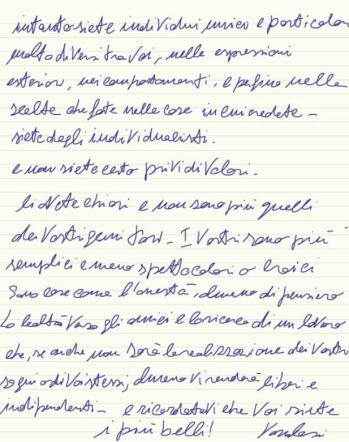 intanto siete individui unici e particolari
molto diversi tra voi, nelle espressioni
esteriori, nei comportamenti, e perfino nelle
scelte che fate nelle cose in cui credete -
siete degli individualisti.
e non siete certo privi di valori -
li avete chiari e non sono più quelli
dei vostri genitori - I vostri sono più
semplici e meno spettacolari o eroici
Sono cose come l'onestà, almeno di pensiero
La lealtà verso gli amici e la ricerca di un lavoro
che, se anche non sarà la realizzazione dei vostri
sogni o di voi stessi, almeno vi renderà liberi e
indipendenti - e ricordatevi che voi siete
i più belli!